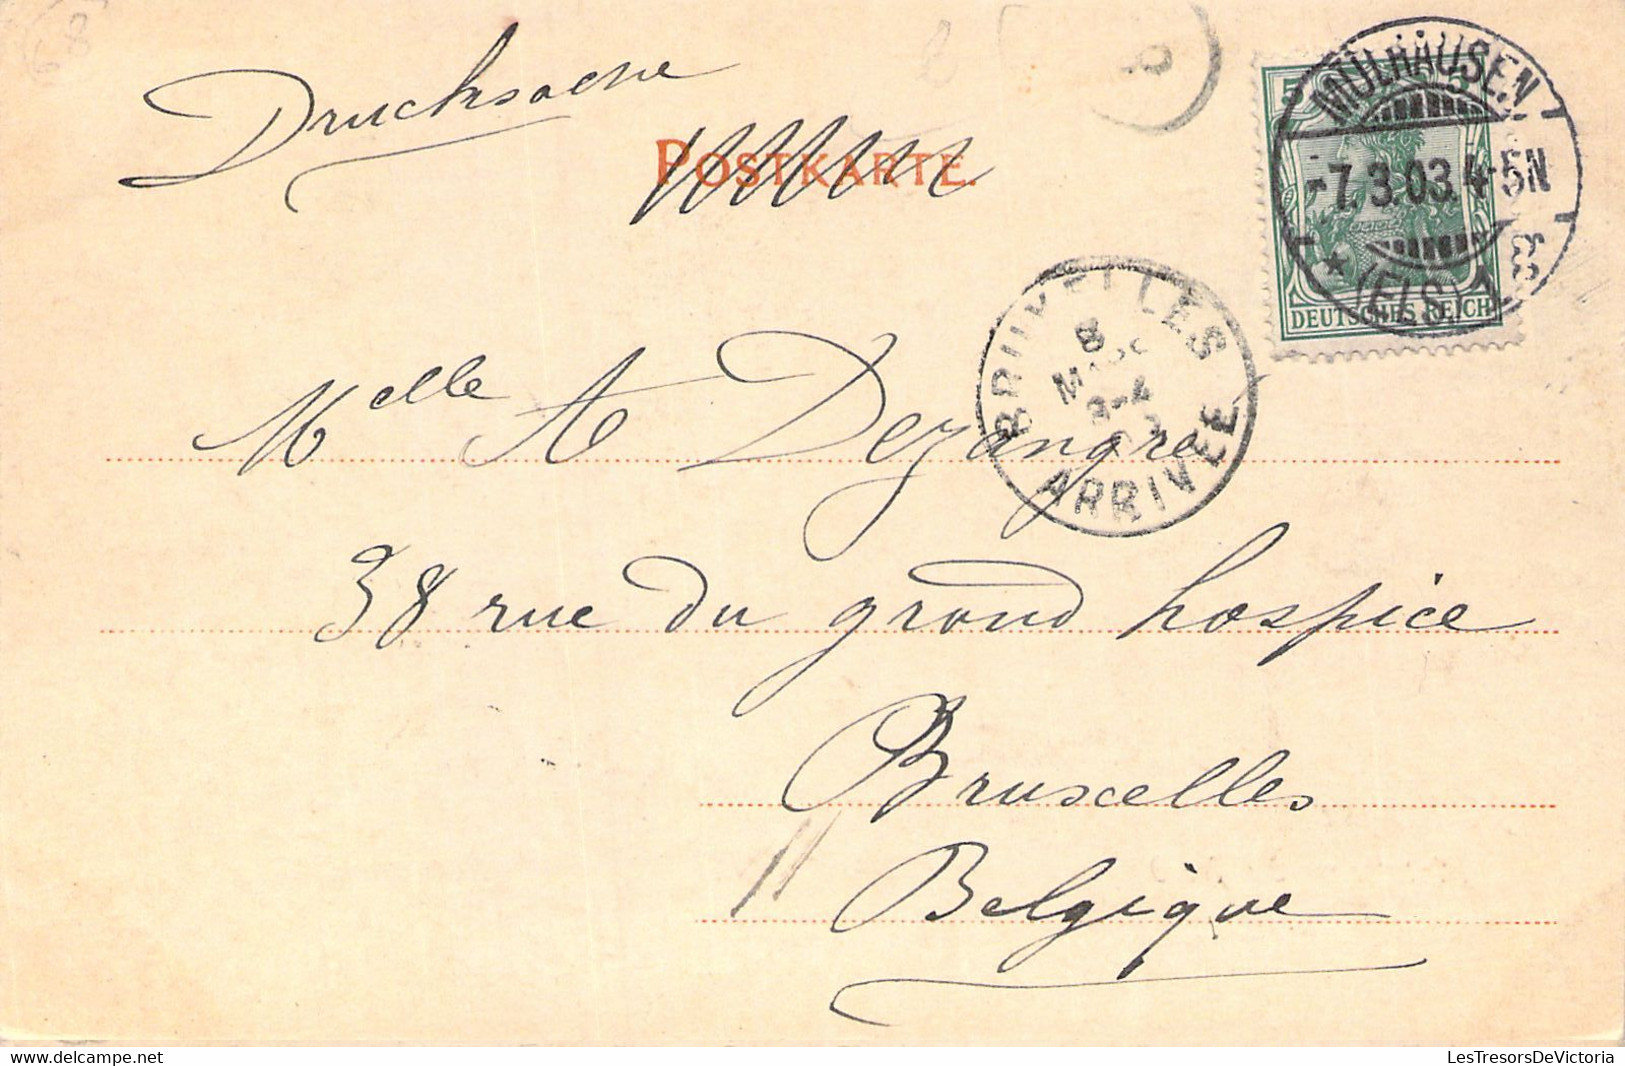 Drucksache
POSTKARTE.
5 5
MÜLHAUSEN
-7.3.03. 4-5N
* (ELS) 1
DEUTSCHES REICH
BRUXELLES
8
3-4
ARRIVÉE
Melle A Dezangre
38 rue du grand hospice
Bruxelles
Belgique
LesTresorsDeVictoria